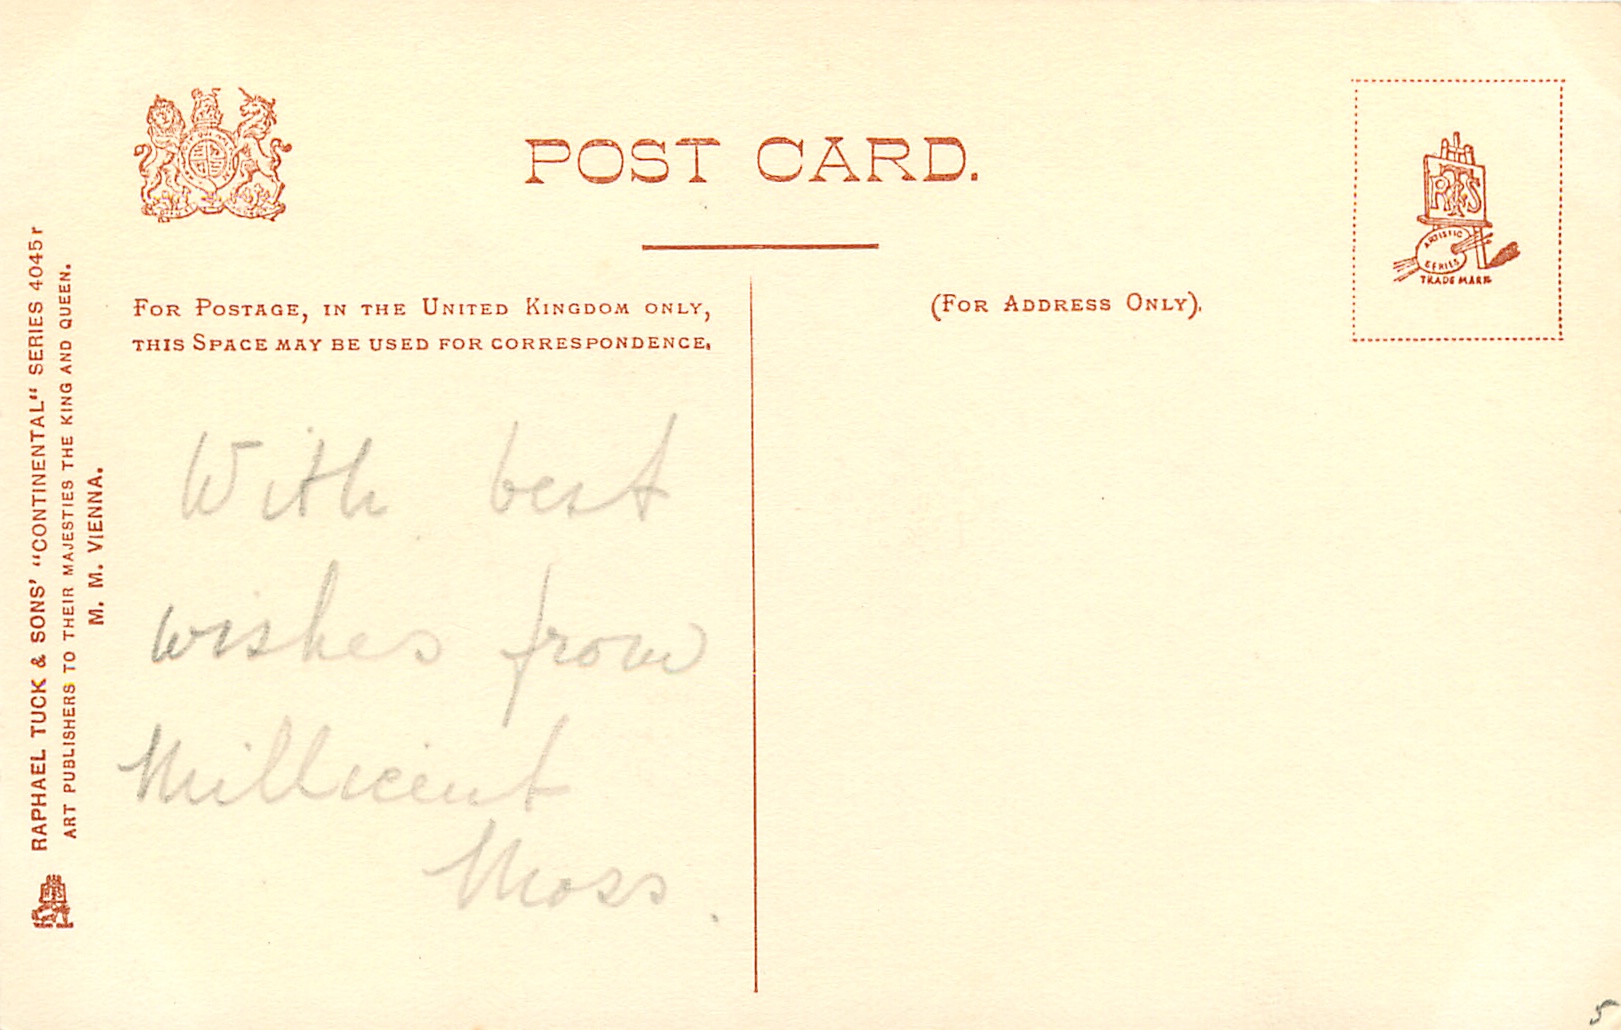 POST CARD.
FOR POSTAGE, IN THE UNITED KINGDOM ONLY,
THIS SPACE MAY BE USED FOR CORRESPONDENCE.
(FOR ADDRESS ONLY).
RTS
ARTISTIC
SERIES
TRADE MARK
With best
wishes from
Millicent
Moss.
RAPHAEL TUCK & SONS' "CONTINENTAL" SERIES 4045 r
ART PUBLISHERS TO THEIR MAJESTIES THE KING AND QUEEN.
M. M. VIENNA.
5